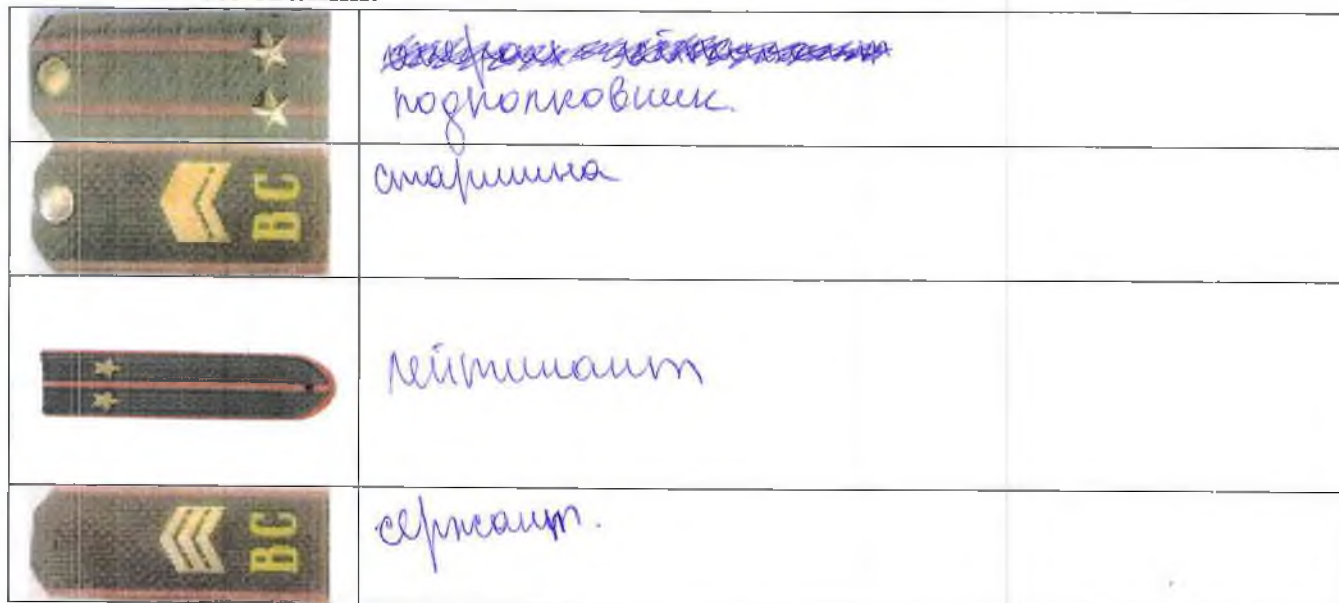 подполковник.
ВС
старшина
лейтинант
ВС
сержант.